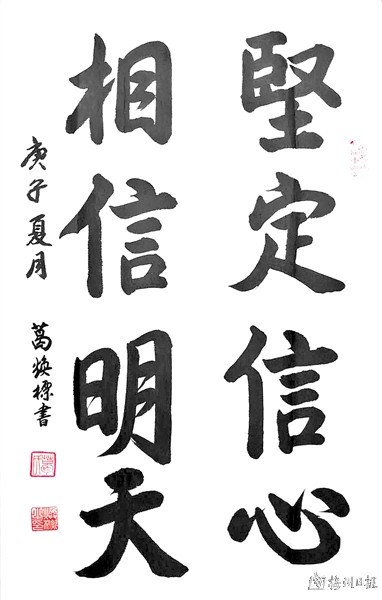 堅定信心
相信明天
庚子夏月
葛焕標書
梅州日报